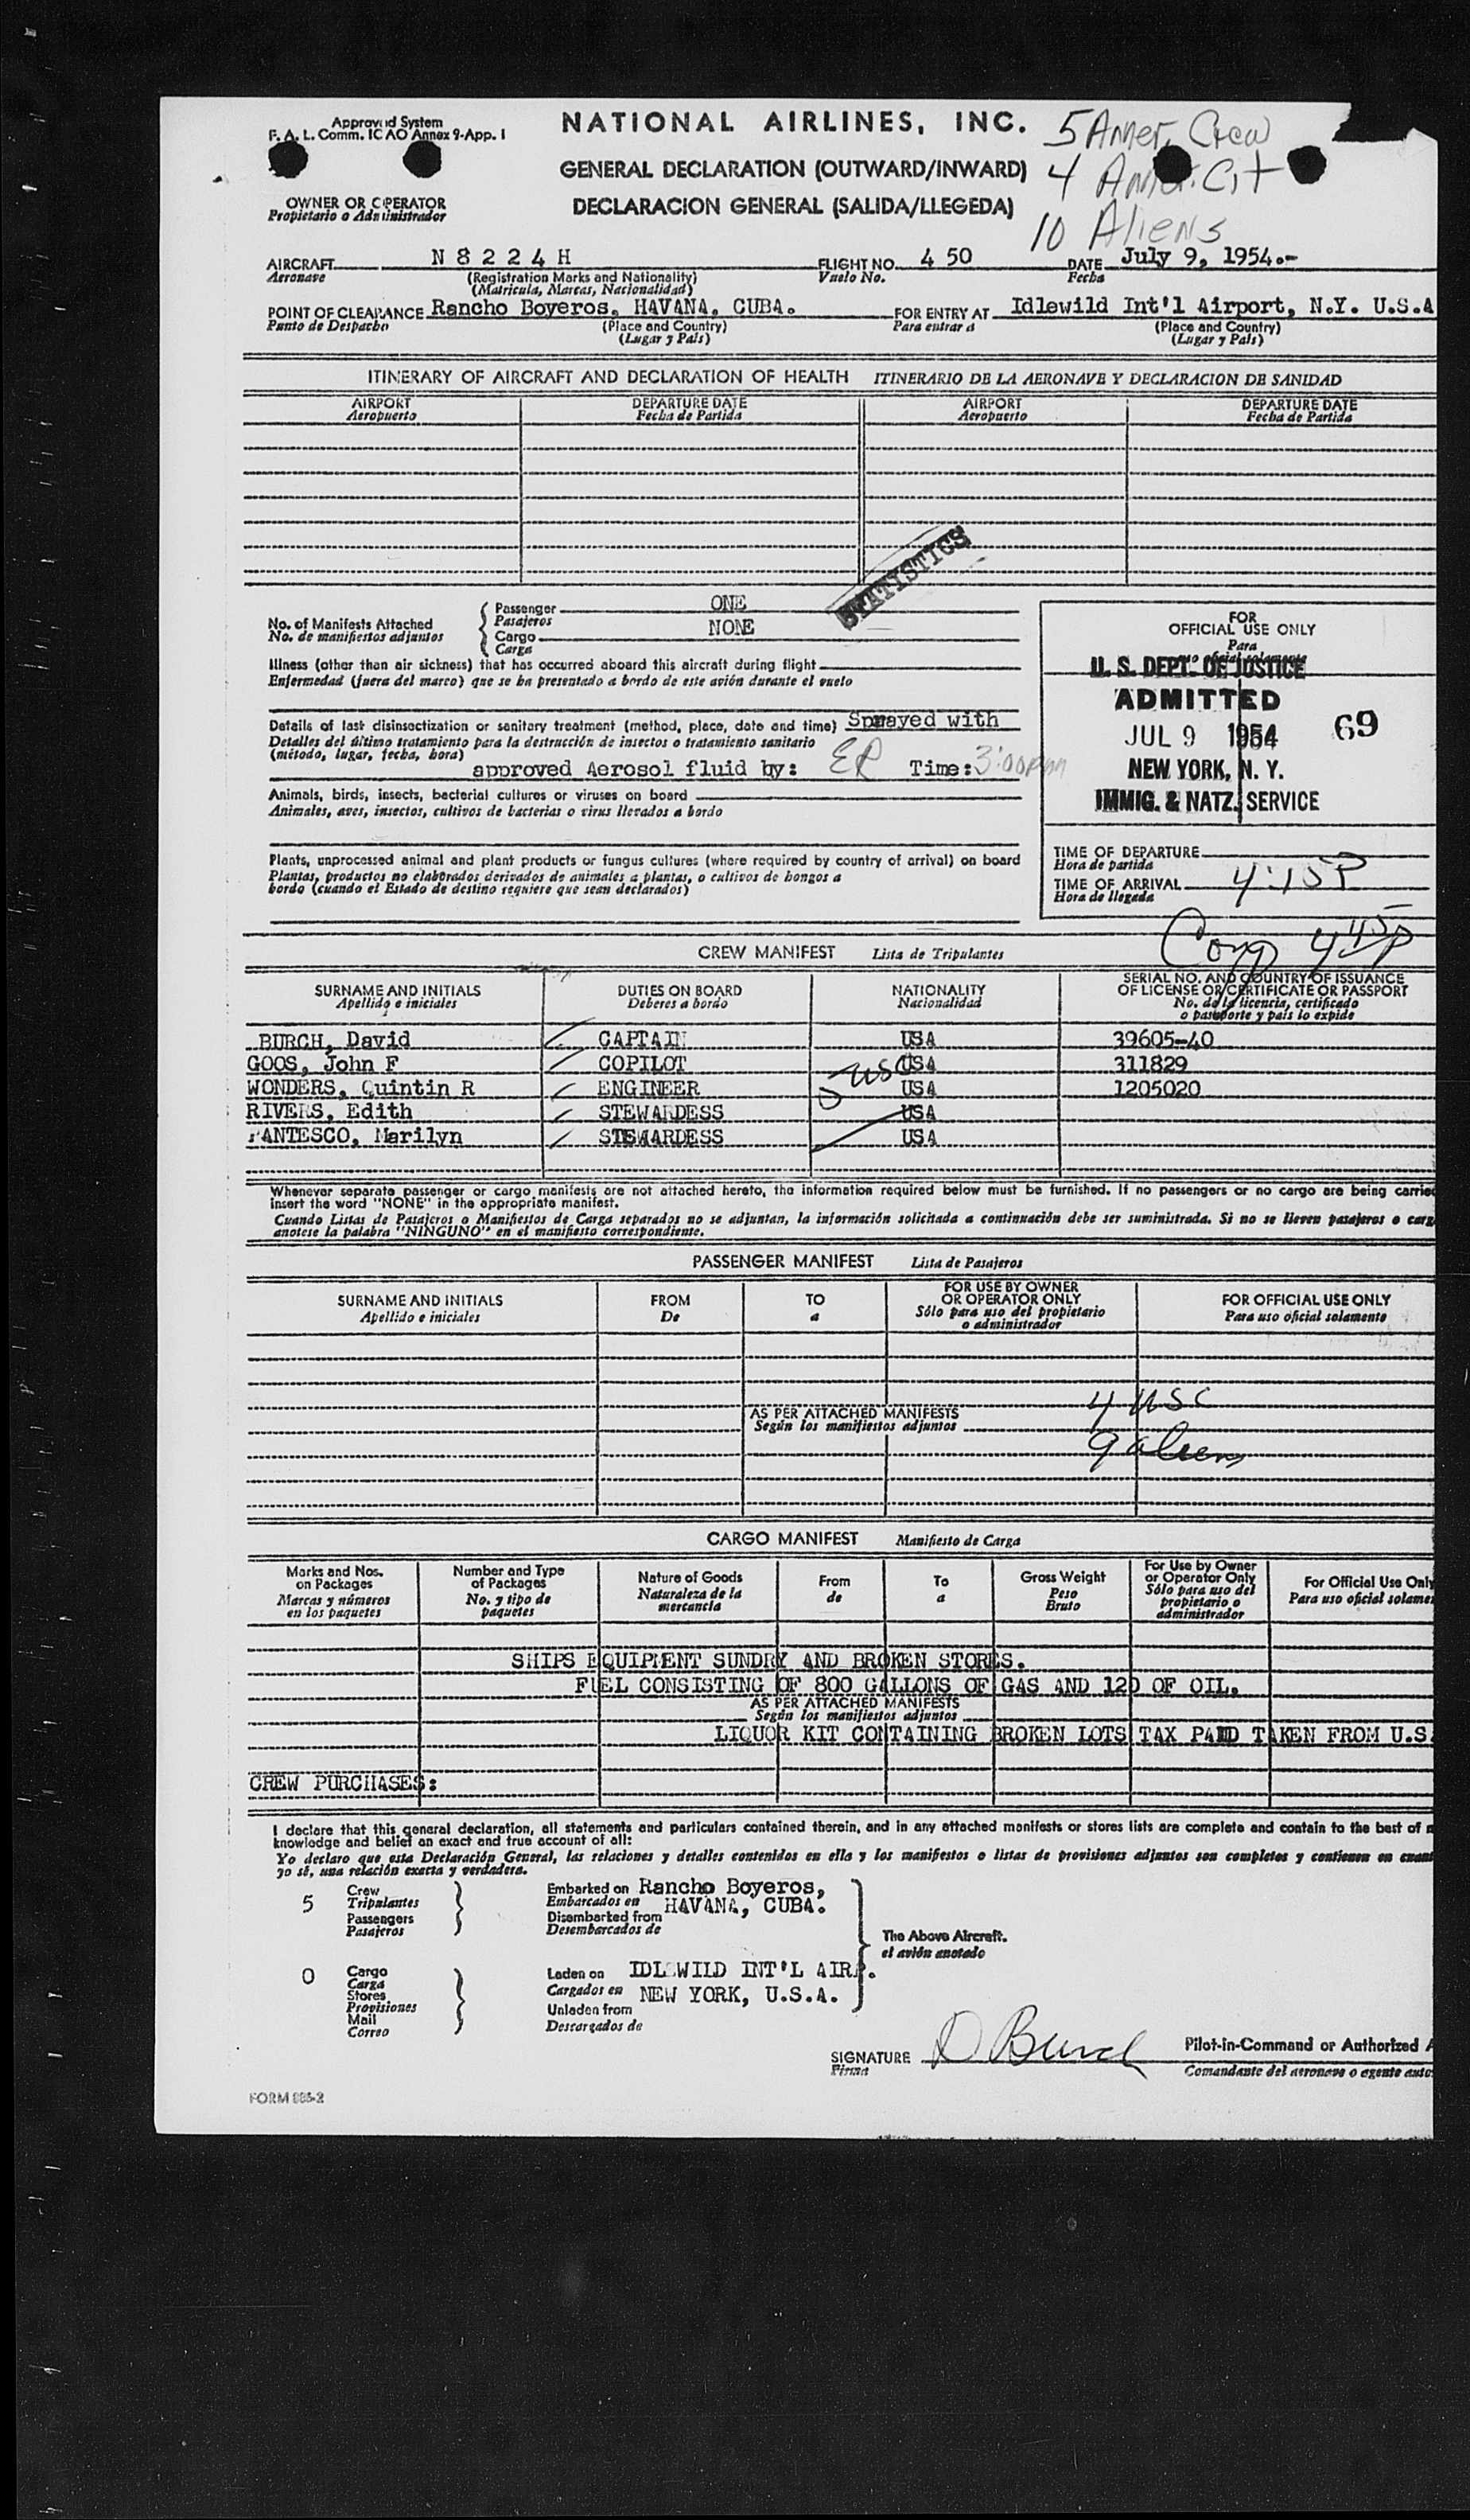 Approved System
F. A. L. Comm. ICAO Annex 9-App. 1
NATIONAL AIRLINES, INC.
5 Amer. Crew
GENERAL DECLARATION (OUTWARD/INWARD)
4 Amer. Cit
OWNER OR OPERATOR
Propietario o Administrador
DECLARACION GENERAL (SALIDA/LLEGEDA)
10 Aliens
AIRCRAFT N 8 2 2 4 H FLIGHT NO. 4 50 DATE July 9, 1954.-
Aeronave (Registration Marks and Nationality) Vuelo No. Fecha
(Matricula, Marcas, Nacionalidad)
POINT OF CLEARANCE Rancho Boyeros, HAVANA, CUBA. FOR ENTRY AT Idlewild Int'l Airport, N.Y. U.S.A
Punto de Despacho (Place and Country) Para entrar a (Place and Country)
(Lugar y País) (Lugar y País)
ITINERARY OF AIRCRAFT AND DECLARATION OF HEALTH ITINERARIO DE LA AERONAVE Y DECLARACION DE SANIDAD
AIRPORT DEPARTURE DATE AIRPORT DEPARTURE DATE
Aeropuerto Fecha de Partida Aeropuerto Fecha de Partida
STATISTICS
No. of Manifests Attached
No. de manifiestos adjuntos
Passenger ONE
Pasajeros
Cargo NONE
Carga
Illness (other than air sickness) that has occurred aboard this aircraft during flight
Enfermedad (fuera del mareo) que se ha presentado a bordo de este avión durante el vuelo
Details of last disinsectization or sanitary treatment (method, place, date and time) Sprayed with
Detalles del último tratamiento para la destrucción de insectos o tratamiento sanitario
(método, lugar, fecha, hora)
approved Aerosol fluid by: ER Time: 3:00pm
Animals, birds, insects, bacterial cultures or viruses on board
Animales, aves, insectos, cultivos de bacterias o virus llevados a bordo
Plants, unprocessed animal and plant products or fungus cultures (where required by country of arrival) on board
Plantas, productos no elaborados derivados de animales a plantas, o cultivos de hongos a
bordo (cuando el Estado de destino requiere que sean declarados)
FOR
OFFICIAL USE ONLY
Para
uso oficial solamente
U. S. DEPT. OF JUSTICE
ADMITTED
JUL 9 1954 69
NEW YORK, N. Y.
IMMIG. & NATZ. SERVICE
TIME OF DEPARTURE
Hora de partida
TIME OF ARRIVAL 4:15P
Hora de llegada
4 45P
CREW MANIFEST Lista de Tripulantes
SURNAME AND INITIALS DUTIES ON BOARD NATIONALITY SERIAL NO. AND COUNTRY OF ISSUANCE
Apellido e iniciales Deberes a bordo Nacionalidad OF LICENSE OR CERTIFICATE OR PASSPORT
No. de la licencia, certificado
o pasaporte y país lo expide
BURCH, David CAPTAIN USA 39605-40
GOOS, John F COPILOT USA 311829
5 USC
WONDERS, Quintin R ENGINEER USA 1205020
RIVERS, Edith STEWARDESS USA
ANTESCO, Marilyn STEWARDESS USA
Whenever separate passenger or cargo manifests are not attached hereto, the information required below must be furnished. If no passengers or no cargo are being carried
insert the word "NONE" in the appropriate manifest.
Cuando Listas de Pasajeros o Manifiestos de Carga separados no se adjuntan, la información solicitada a continuación debe ser suministrada. Si no se lleven pasajeros o carg
anotese la palabra "NINGUNO" en el manifiesto correspondiente.
PASSENGER MANIFEST Lista de Pasajeros
SURNAME AND INITIALS FROM TO FOR USE BY OWNER FOR OFFICIAL USE ONLY
Apellido e iniciales De a OR OPERATOR ONLY Para uso oficial solamente
Sólo para uso del propietario
o administrador
4 USC
AS PER ATTACHED MANIFESTS
Según los manifiestos adjuntos
9 aliens
CARGO MANIFEST Manifiesto de Carga
Marks and Nos. on Packages Marcas y números en los paquetes
Number and Type of Packages No. y tipo de paquetes
Nature of Goods Naturaleza de la mercancía
From de
To a
Gross Weight Peso Bruto
For Use by Owner or Operator Only Sólo para uso del propietario o administrador
For Official Use Only Para uso oficial solame
SHIPS EQUIPMENT SUNDRY AND BROKEN STORES.
FUEL CONSISTING OF 800 GALLONS OF GAS AND 120 OF OIL.
AS PER ATTACHED MANIFESTS
Según los manifiestos adjuntos
LIQUOR KIT CONTAINING BROKEN LOTS TAX PAID TAKEN FROM U.S.
CREW PURCHASES:
I declare that this general declaration, all statements and particulars contained therein, and in any attached manifests or stores lists are complete and contain to the best of m
knowledge and belief an exact and true account of all:
Yo declaro que esta Declaración General, las relaciones y detalles contenidos en ella y los manifiestos o listas de provisiones adjuntos son completos y contienen en cuant
yo sé, una relación exacta y verdadera.
5 Crew Tripulantes Passengers Pasajeros
Embarked on Rancho Boyeros,
Embarcados en HAVANA, CUBA.
Disembarked from
Desembarcados de
The Above Aircraft.
el avión anotado
0 Cargo Carga Stores Provisiones Mail Correo
Laden on IDLEWILD INT'L AIRP.
Cargados en NEW YORK, U.S.A.
Unladen from
Descargados de
SIGNATURE D Burch Pilot-in-Command or Authorized A
Firma Comandante del aeronave o agente auto
FORM 886-2